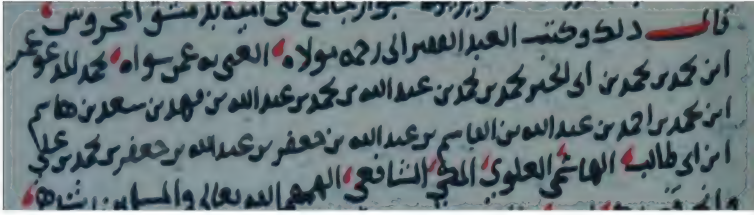 بجوار جامع بني امية بدمشق المحروس
قال ذلك وكتب العبد الفقير الى رحمة مولاه الغني به عمن سواه محمد المدعو عمر
ابن محمد بن محمد بن ابي الخير محمد بن محمد بن عبد الله بن محمد بن عبد الله بن فهد بن سعد بن هاشم
ابن محمد بن احمد بن عبد الله بن القاسم بن عبد الله بن جعفر بن عبد الله بن جعفر بن محمد بن علي
ابن ابي طالب الهاشمي العلوي المكي الشافعي الله تعالى والمسلمين